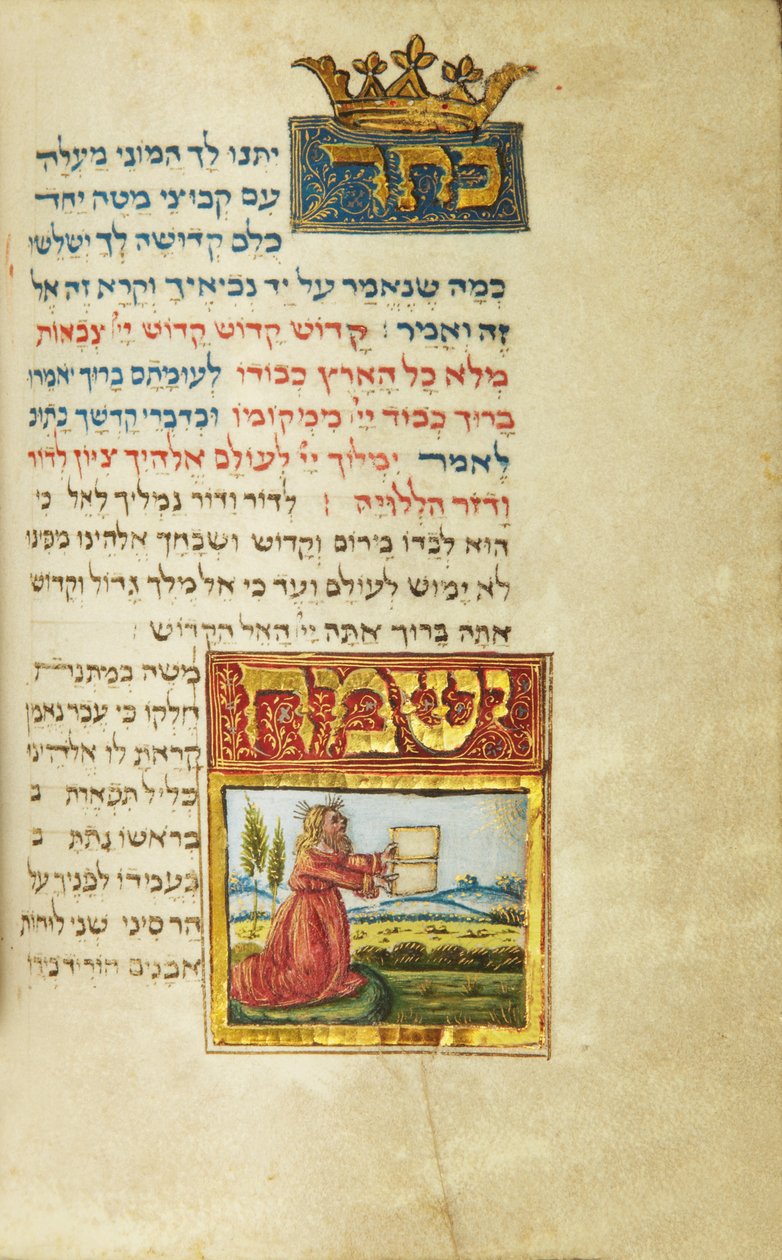 כתר
יתנו לך המוני מעלה
עם קבוצי מטה יחד
כלם קדושה לך ישלשו
כמה שנאמר על יד נביאיך וקרא זה אל
זה ואמר : קדוש קדוש קדוש יי' צבאות
מלא כל הארץ כבודו לעומתם ברוך יאמרו
ברוך כבוד יי' ממקומו ובדברי קדשך כתוב
לאמר ימלוך יי' לעולם אלהיך ציון לדור
ודור הללויה : לדור ודור נמליך לאל כי
הוא לבדו מרום וקדוש ושבחך אלהינו מפינו
לא ימוש לעולם ועד כי אל מלך גדול וקדוש
אתה ברוך אתה יי' האל הקדוש :
ישמח
משה במתנת ח
חלקו כי עבד נאמן
קראת לו אלהינו
כליל תפארת ב
בראשו נתת ב
בעמידו לפניך על
הר סיני שני לוחות
אבנים הוריד בידו